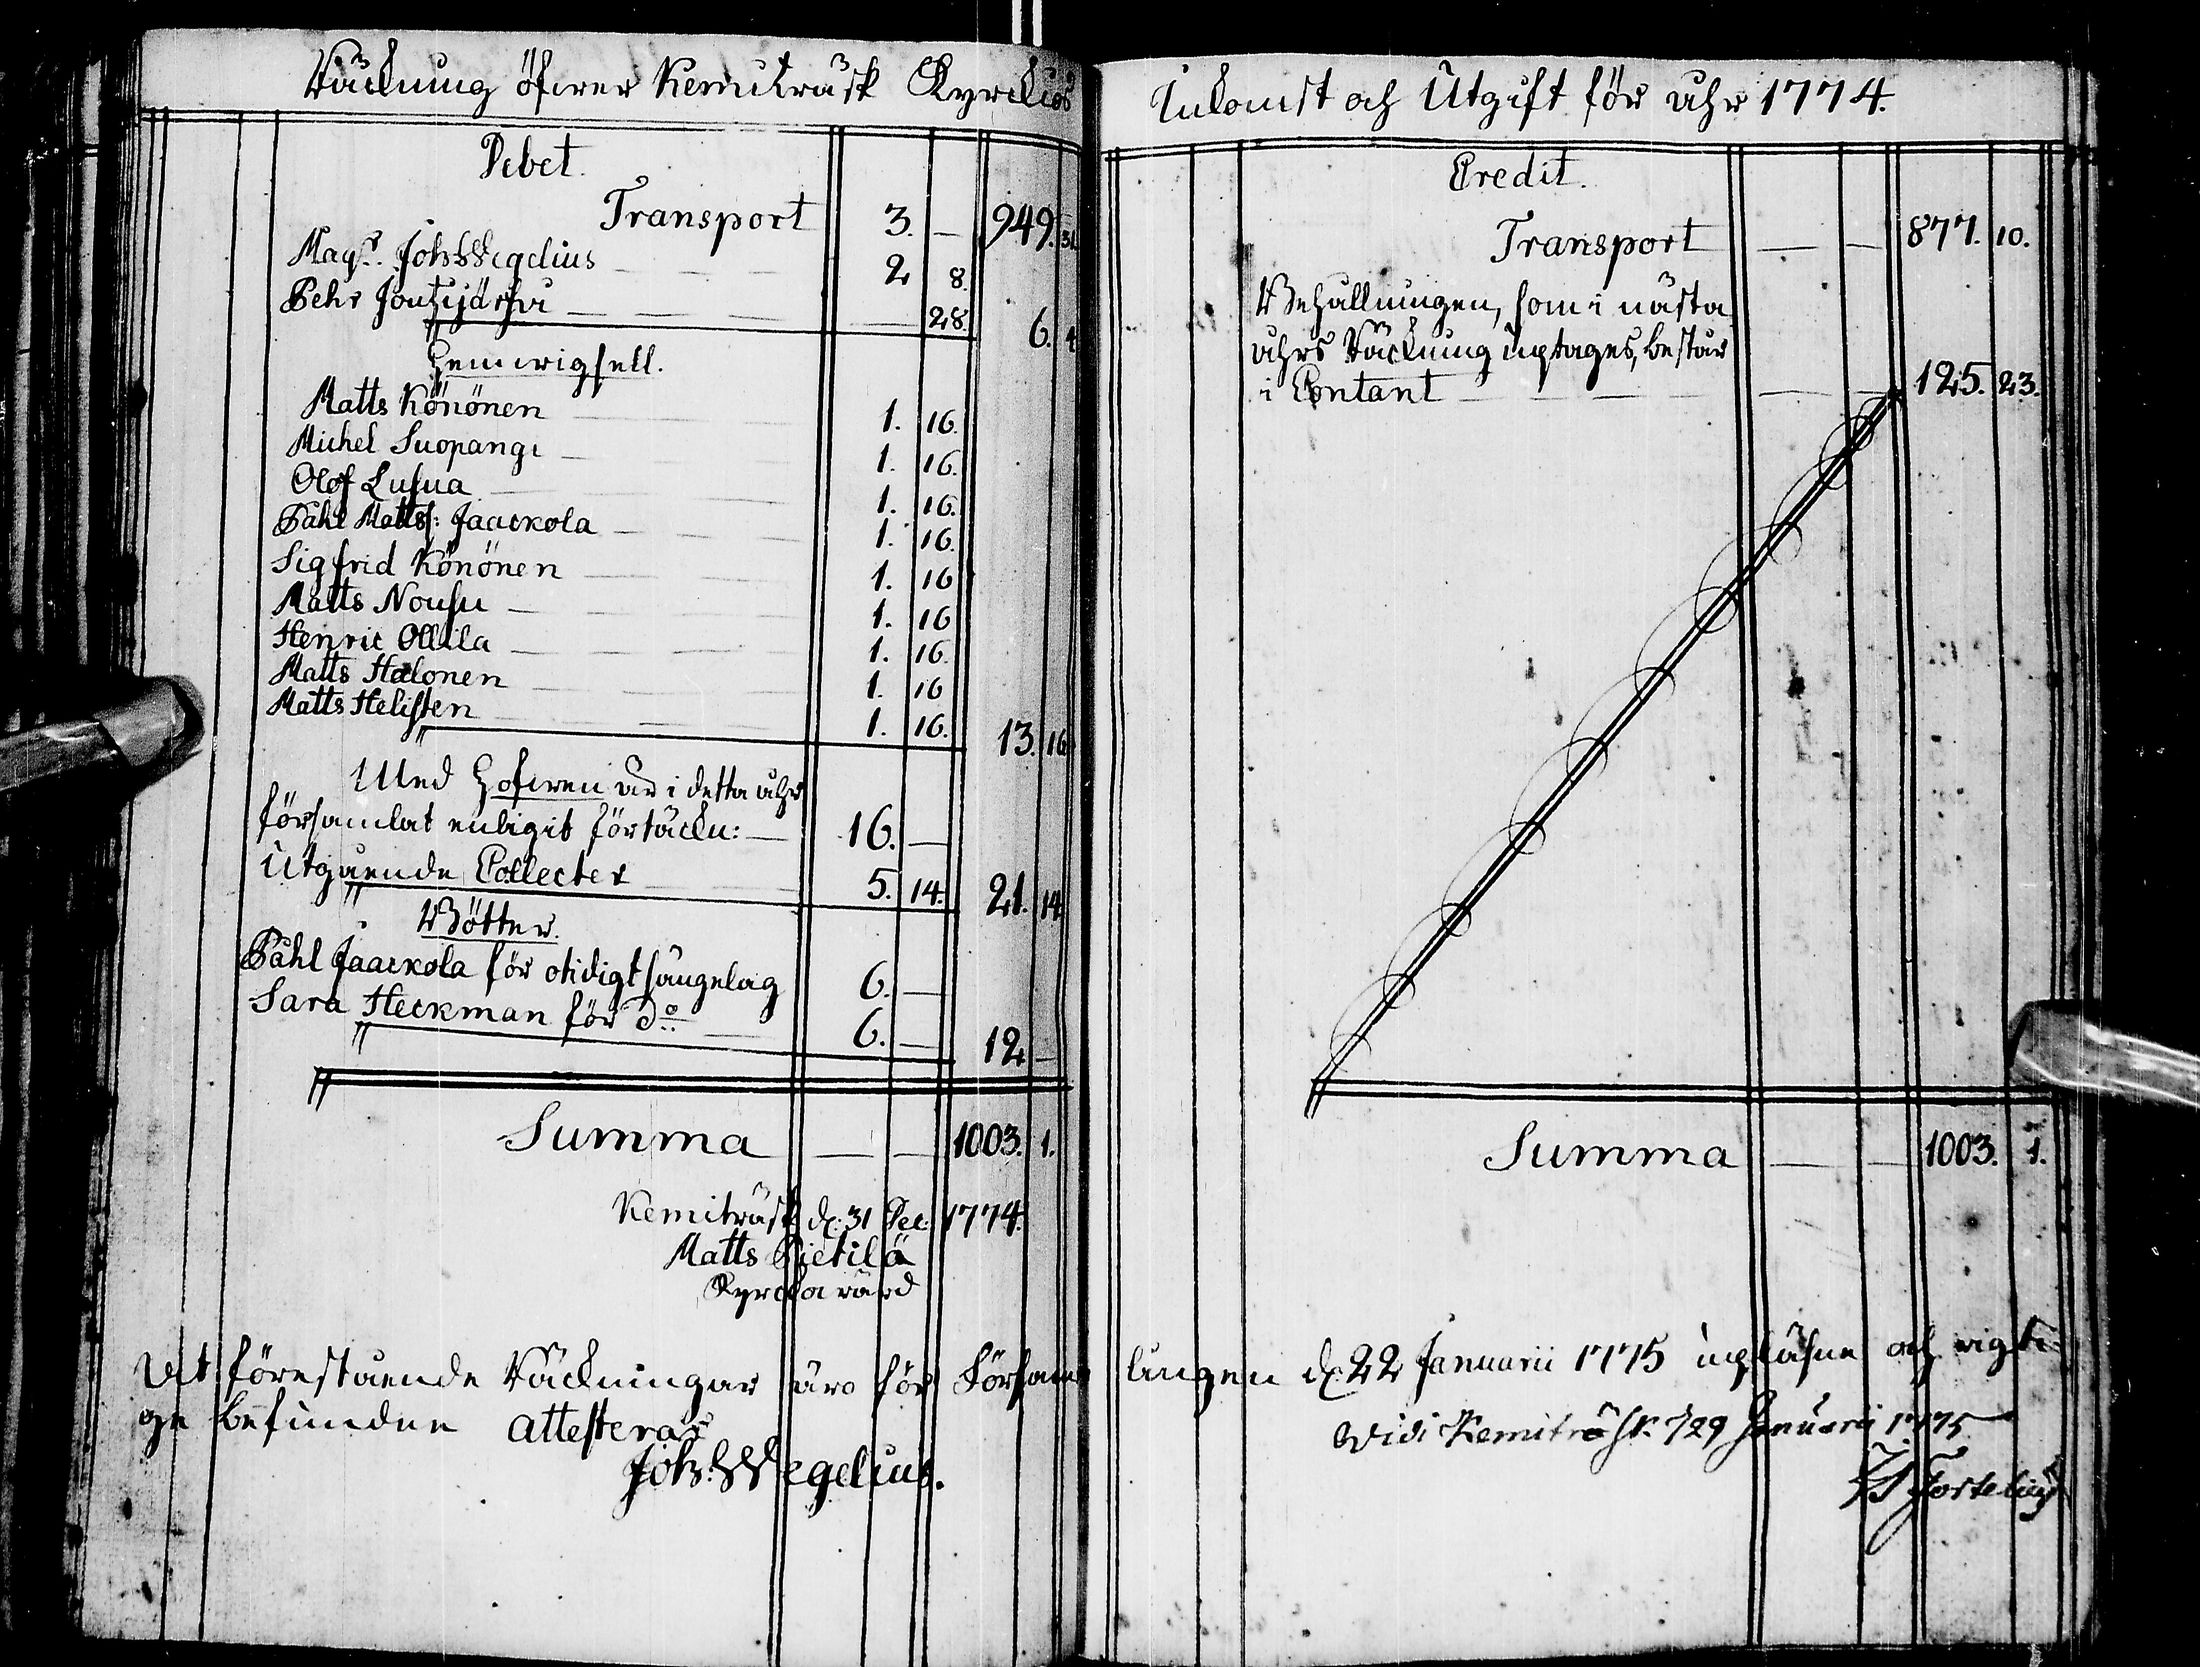 Räckning öfwer Kemiträsk Kyrckios
Debet.
Transport 3. — 949. 31.
Mag:r Joh: Wegelius 2 8.
Pehr Joutzijärfvi — 28. 6. 4
Hemwigsell.
Matts Könönen 1. 16.
Michel Suopangi 1. 16.
Olof Lusua 1. 16.
Påhl Mattss: Jaackola 1. 16.
Sigfrid Könönen 1. 16
Matts Nousu 1. 16
Henric Ollila 1. 16.
Matts Halonen 1. 16
Matts Helisten 1. 16. 13. 16
Med Hofwen är i detta åhr
församlat enligit förtäckn: 16. —
Utgående Collecter 5. 14. 21. 14
Bötter.
Påhl Jaackola för otidigt sängelag 6. —
Sara Heckman för d:o 6. — 12 —
Summa — — 1003. 1.
Kemiträsk d: 31 Dec: 1774.
Matts Pietilä
Kyrckowärd
Inkomst och Utgift för åhr 1774.
Credit.
Transport — — 877. 10.
Behållningen, som i nästa
åhrs Räckning uptages, består
i Contant — — 125. 23.
Summa — — 1003. 1.
At förestående Räckningar äro för Församlingen d: 22 Januarii 1775 upläsne och rigti
ge befundne attesteras
Joh: Wegelius.
Vidi Kemiträsk 29 Januarii 1775
Fortelius